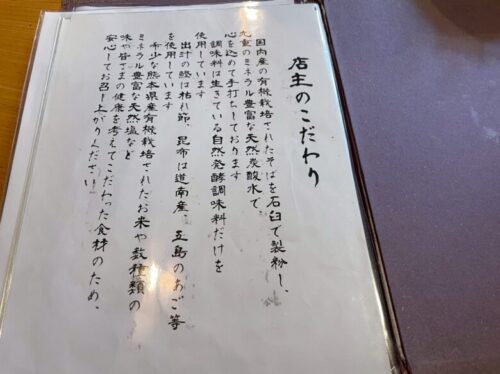 店主のこだわり
国内産の有機栽培されたそばを石臼で製粉し、
九重のミネラル豊富な天然炭酸水で、
心を込めて手打ちしております
調味料は生きている自然発酵調味料だけを
使用しています
出汁の鰹は枯れ節、昆布は道南産、五島のあご等
を使用しています
希少な熊本県産有機栽培されたお米や数種類の
ミネラル豊富な天然塩など
味や皆さまの健康を考えてこだわった食材のため、
安心してお召し上がりください